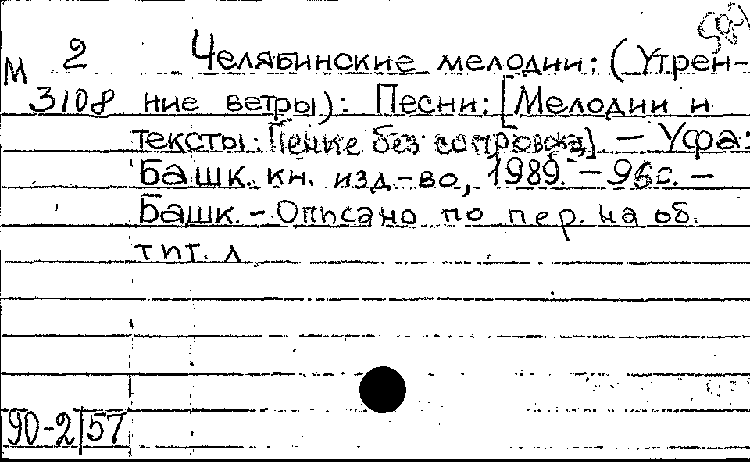 М 2 Челябинские мелодии: (Утрен-
3108 ние ветры): Песни: [Мелодии и
тексты: Пение без сопровожд.] — Уфа:
Башк. кн. изд-во, 1989. — 96с. —
Башк. - Описано по пер. на об.
тит. л
90-2 57